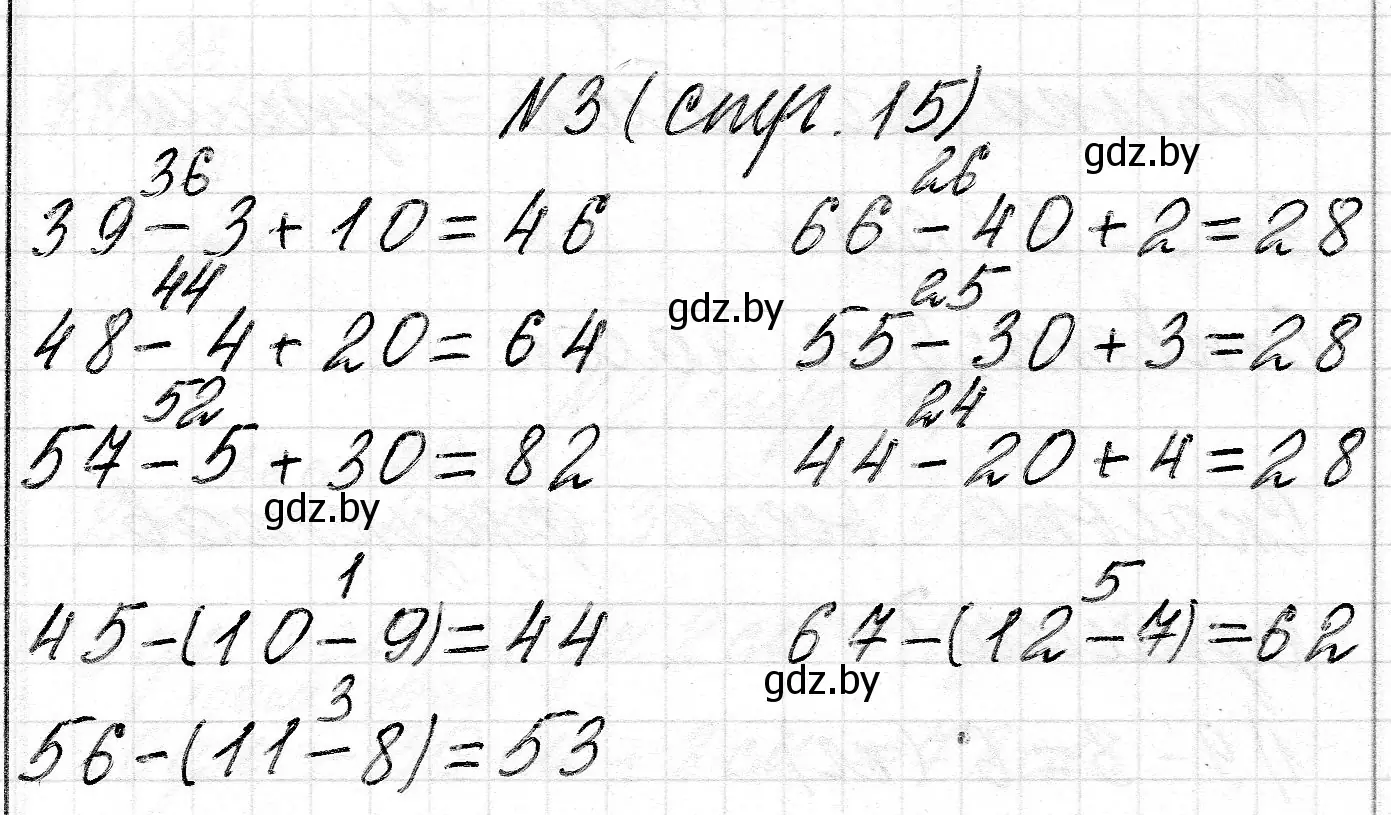 N 3 (стр. 15)
gdz.by
36 26
39 - 3 + 10 = 46 66 - 40 + 2 = 28
44 25
gdz.by
48 - 4 + 20 = 64 55 - 30 + 3 = 28
52 24
57 - 5 + 30 = 82 44 - 20 + 4 = 28
gdz.by
1 5
45 - (10 - 9) = 44 67 - (12 - 7) = 62
gdz.by
3
56 - (11 - 8) = 53